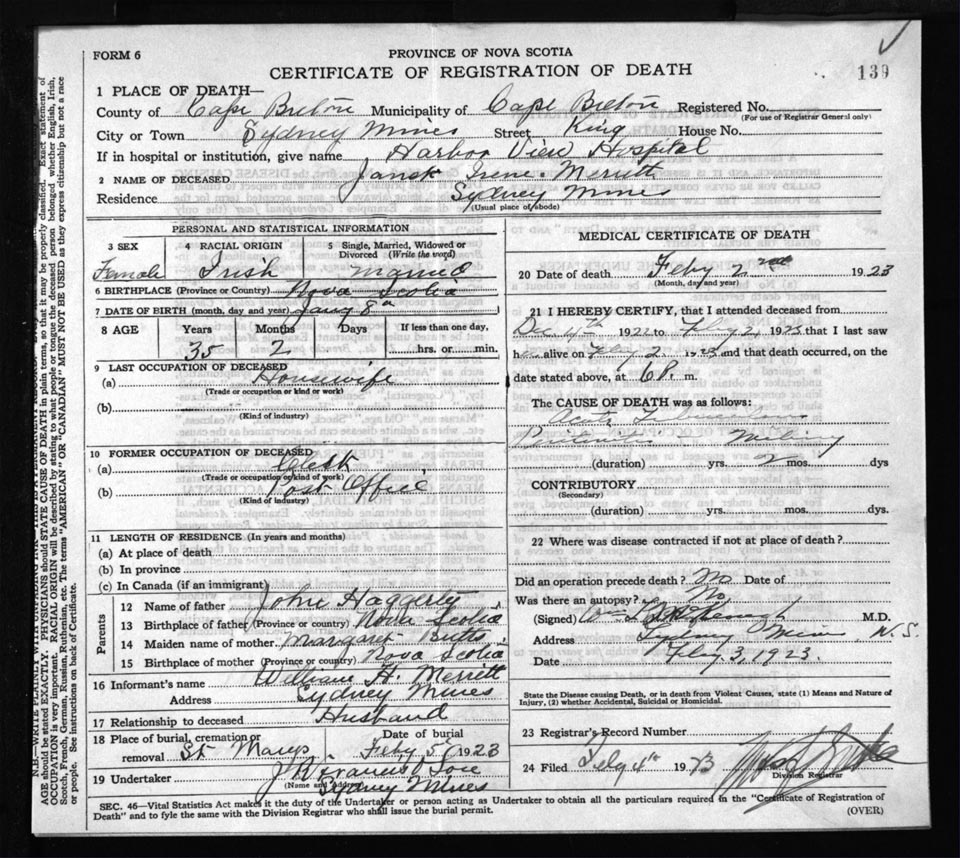 FORM 6
PROVINCE OF NOVA SCOTIA
CERTIFICATE OF REGISTRATION OF DEATH
139
1 PLACE OF DEATH—
County of Cape Breton Municipality of Cape Breton Registered No.
(For use of Registrar General only)
City or Town Sydney Mines Street King House No.
If in hospital or institution, give name Harbor View Hospital
2 NAME OF DECEASED Irene Merritt
Residence Sydney Mines
(Usual place of abode)
PERSONAL AND STATISTICAL INFORMATION
3 SEX 4 RACIAL ORIGIN 5 Single, Married, Widowed or Divorced (Write the word)
Female Irish Married
6 BIRTHPLACE (Province or Country) Nova Scotia
7 DATE OF BIRTH (month, day and year) 8
8 AGE Years Months Days If less than one day,
35 2 hrs. or min.
9 LAST OCCUPATION OF DECEASED
(a) Housewife
(Trade or occupation or kind or work)
(b)
(Kind of industry)
10 FORMER OCCUPATION OF DECEASED
(a) Clerk
(Trade or occupation or kind of work)
(b) Post Office
(Kind of industry)
11 LENGTH OF RESIDENCE (In years and months)
(a) At place of death
(b) In province
(c) In Canada (if an immigrant)
Parents
12 Name of father John Haggerty
13 Birthplace of father (Province or country) Nova Scotia
14 Maiden name of mother Margaret Butts
15 Birthplace of mother (Province or country) Nova Scotia
16 Informant's name William H. Merritt
Address Sydney Mines
17 Relationship to deceased Husband
18 Place of burial, cremation or removal St Marys Date of burial Feby 5 1923
19 Undertaker J Francis
(Name and address) Sydney Mines
MEDICAL CERTIFICATE OF DEATH
20 Date of death Feby 2nd 1923
(Month, day and year)
21 I HEREBY CERTIFY, that I attended deceased from
Dec 1922 to Feby 2 1923 that I last saw
h alive on Feby 2 1923 and that death occurred, on the
date stated above, at 6 P. m.
The CAUSE OF DEATH was as follows:
Peritonitis
(duration) yrs. 2 mos. dys
CONTRIBUTORY
(Secondary)
(duration) yrs. mos. dys.
22 Where was disease contracted if not at place of death?
Did an operation precede death? No Date of
Was there an autopsy? No
(Signed) M.D.
Address Sydney Mines N.S.
Date Feby 3, 1923.
State the Disease causing Death, or in death from Violent Causes, state (1) Means and Nature of
Injury, (2) whether Accidental, Suicidal or Homicidal.
23 Registrar's Record Number
24 Filed Feby 4th 1923
Division Registrar
SEC. 46—Vital Statistics Act makes it the duty of the Undertaker or person acting as Undertaker to obtain all the particulars required in the "Certificate of Registration of
Death" and to fyle the same with the Division Registrar who shall issue the burial permit.
(OVER)
AGE should be stated EXACTLY. PHYSICIANS should STATE CAUSE OF DEATH in plain terms, so that it may be properly classified. Exact statement of
OCCUPATION is very important. RACIAL ORIGIN will be described by stating to what people or tongue the deceased person belonged whether English, Irish,
Scotch, French, German, Russian, Ruthenian, etc. The terms "AMERICAN" or "CANADIAN" MUST NOT BE USED as they express citizenship but not a race
or people. See instructions on back of Certificate.